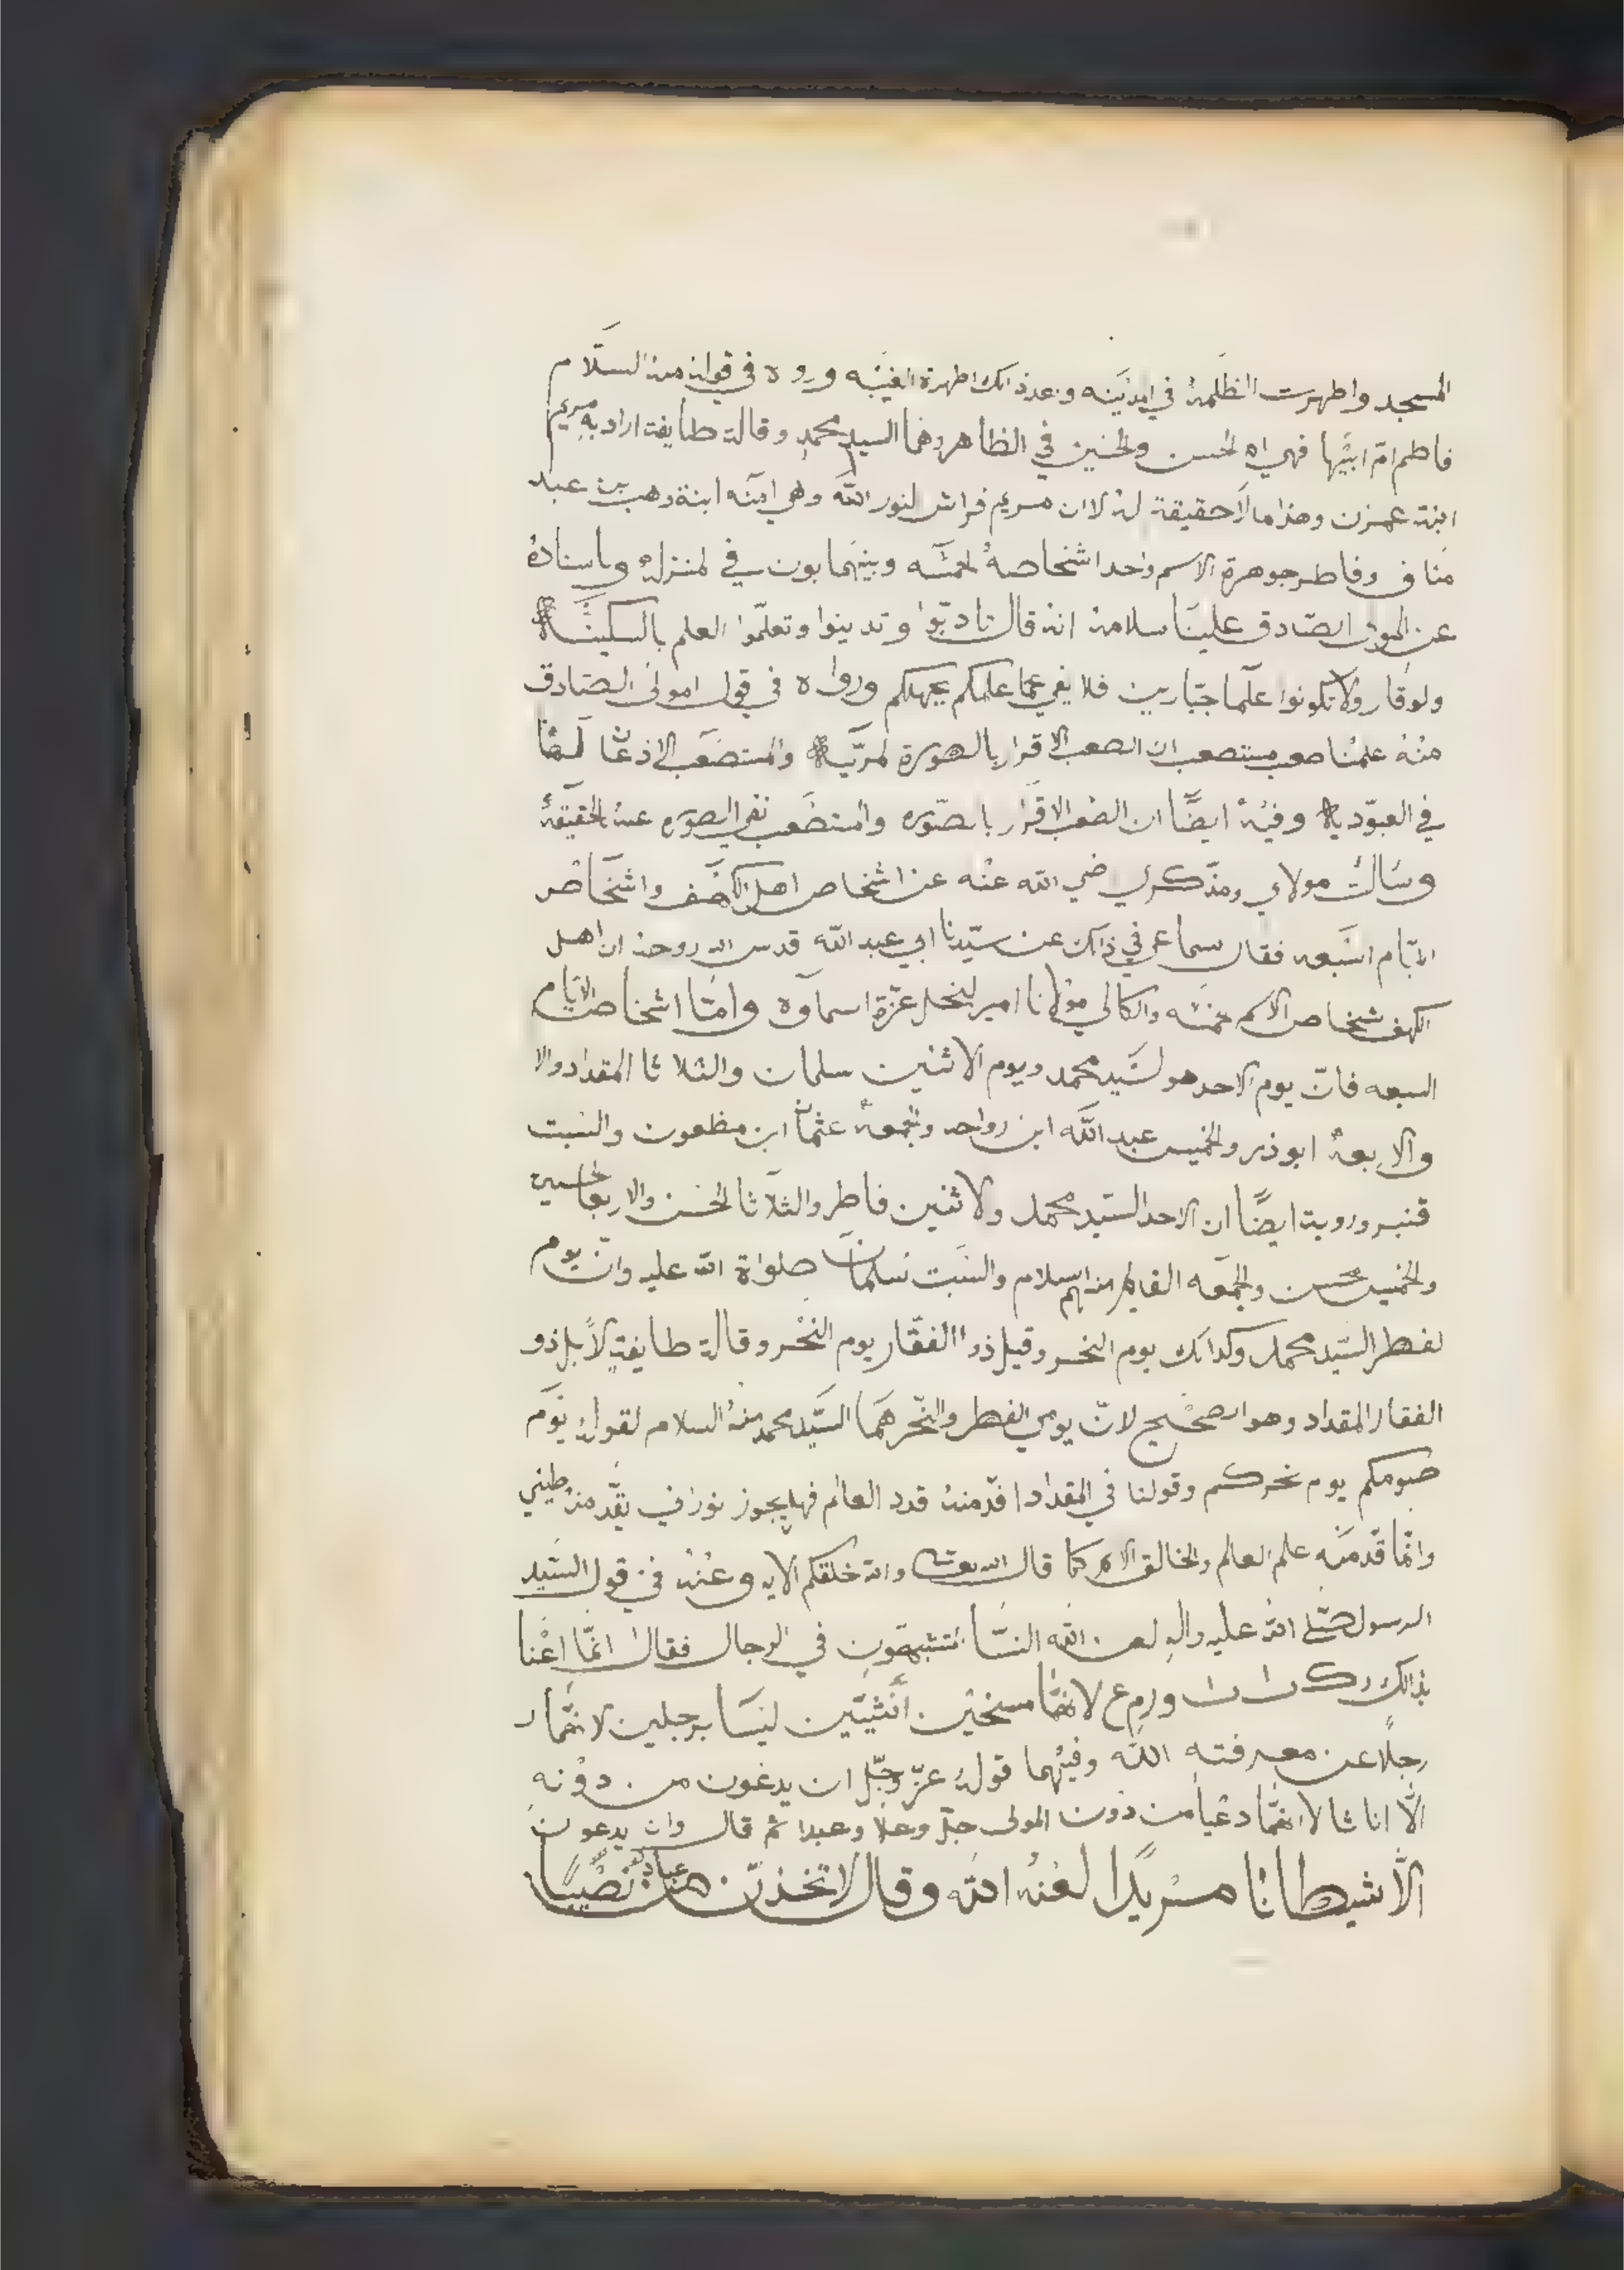 المسجد واظهرت الظلمة في المدينه وعند ذالك اظهرة الغيبه وروه في قوله منه السلام
فاطم ام ابيها فهي ام الحسن والحسين في الظاهر وهما السيد محمد وقالت طايفة اراد به مريم
ابنة عمرن وهذا ما لا حقيقة له لان مريم فراش لنور الله وهي امنه ابنة وهب بن عبد
مناف وفاطر جوهرة الاسم واحد اشخاصه الخمسه وبينهما بون في المنزله وباسناده
عن المولى الصادق علينا سلامه انه قال تادبوا وتدينوا وتعلموا العلم بالسكينة
ولوقار ولا تكونوا علما جبارين فلا يفي علمكم بجهلكم ورواه في قول المولى الصادق
منه علمنا صعب مستصعب ان الصعب الاقرار بالصورة المريية والمستصعب الاذعان لها
في العبودية وفيه ايضًا ان الصعب الاقرار بالصوره والمستصعب نفي الصوره عنه الحقيقة
وسالت مولاي ومذكري رضي الله عنه عن اشخاص اهل الكهف واشخاص
الايام السبعه فقال سماعي في ذالك عن سيدنا ابي عبد الله قدس الله روحه ان اهل
الكهف شخاص الاسم خمسه والكالي مولانا امير النحل عزة اسماوه واما اشخاص الايام
السبعه فان يوم الاحد هو السيد محمد ويوم الاثنين سلمان والثلاثا المقداد والا
والاربعة ابوذر والخميس عبد الله ابن رواحه والجمعة عثمان ابن مظعون والسبت
قنبر وروية ايضًا ان الاحد السيد محمد ولاثنين فاطر والثلاثا الحسن والاربعا الحسين
والخميس محسن والجمعه القايم منهم السلام والسبت سلمان صلواة الله عليه وان يوم
لفطر السيد محمد وكذالك يوم النحر وقيل ذو الفقار يوم النحر وقالت طايفة لا بل ذو
الفقار المقداد وهو الصحيح لان يومي الفطر والنحر هما السيد محمد منه السلام لقوله يوم
صومكم يوم نحركم وقولنا في المقداد اقد منه قدد العالم فهل يجوز نوراني يقد منه طيني
وانما قد منه علم العالم والخالق الاسم كما قال الله تعالى والله خلقكم الايه وعنه في قول السيد
الرسول صلى الله عليه واله لعن الله النسا المتشبهون في الرجال فقال انما اعنا
بذالك ر ك ر ا ورم ع لانهما مسخين أنثيين ليسا برجلين لانهما ر
رجلًا عن معرفته الله وفيهما قوله عز وجل ان يدعون من دونه
الا اناثا لانهما دعيا من دون المولى جل وعلا وعبدا ثم قال وان يدعون
الا شيطانا مريدا لعنه الله وقال لاتخذن من عبادك نصيبًا